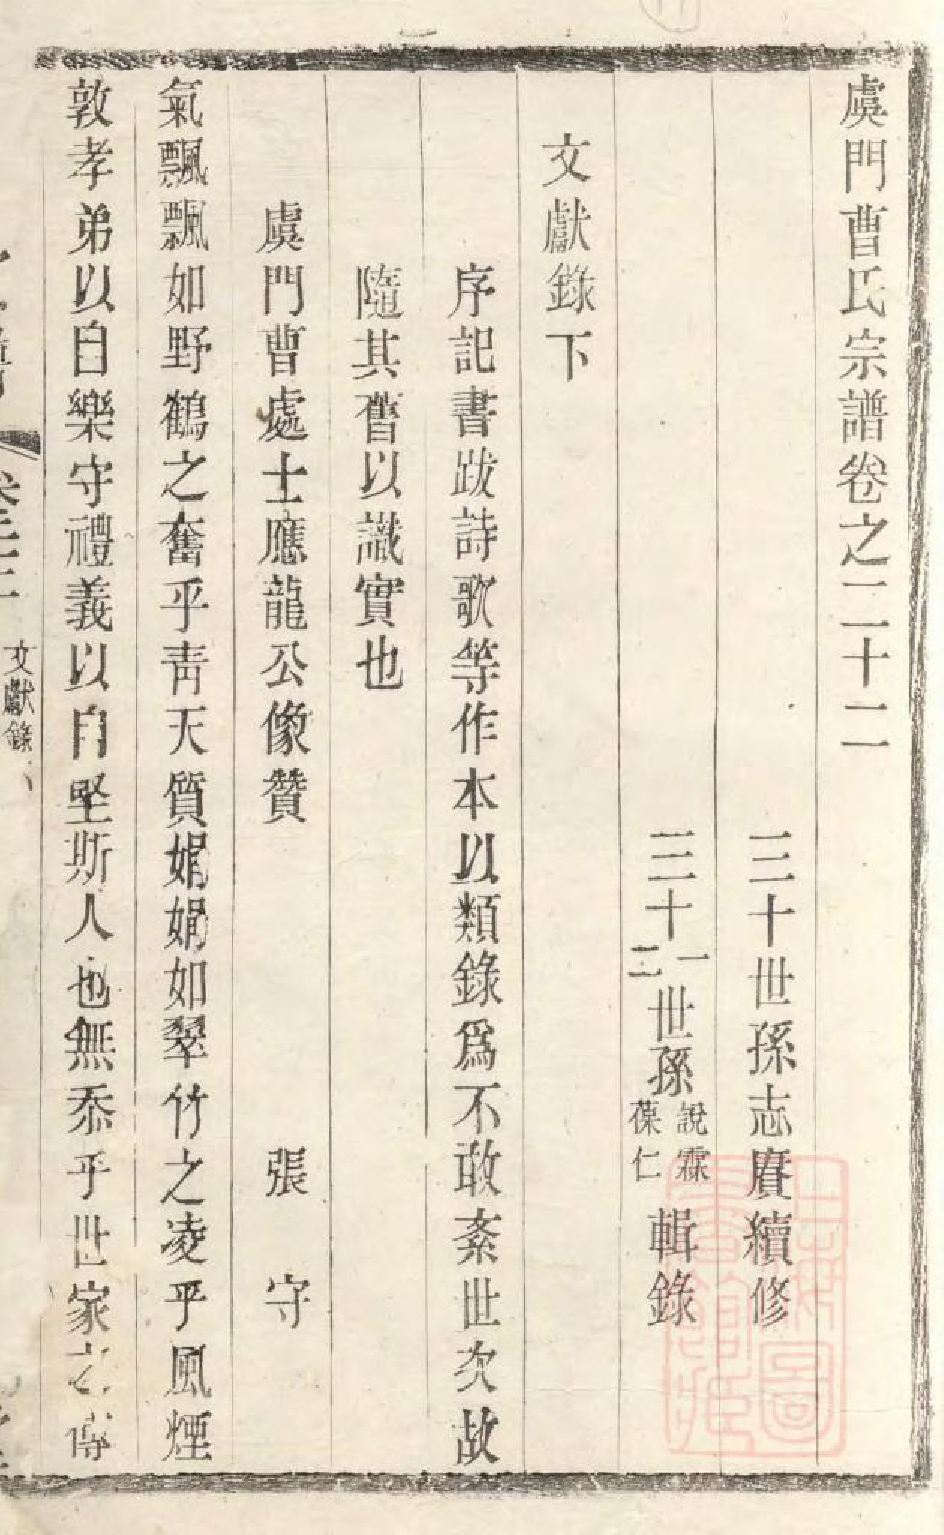 虞門曹氏宗譜卷之二十二
三十世孫志賡續修
三十一二世孫說霖葆仁輯錄
文獻錄下
序記書跋詩歌等作本以類錄爲不敢紊世次故
隨其舊以識實也
虞門曹處士應龍公像贊 張守
氣飄飄如野鶴之奮乎青天質娟娟如翠竹之凌乎風煙
敦孝弟以自樂守禮義以自堅斯人也無忝乎世家之傳
文獻錄